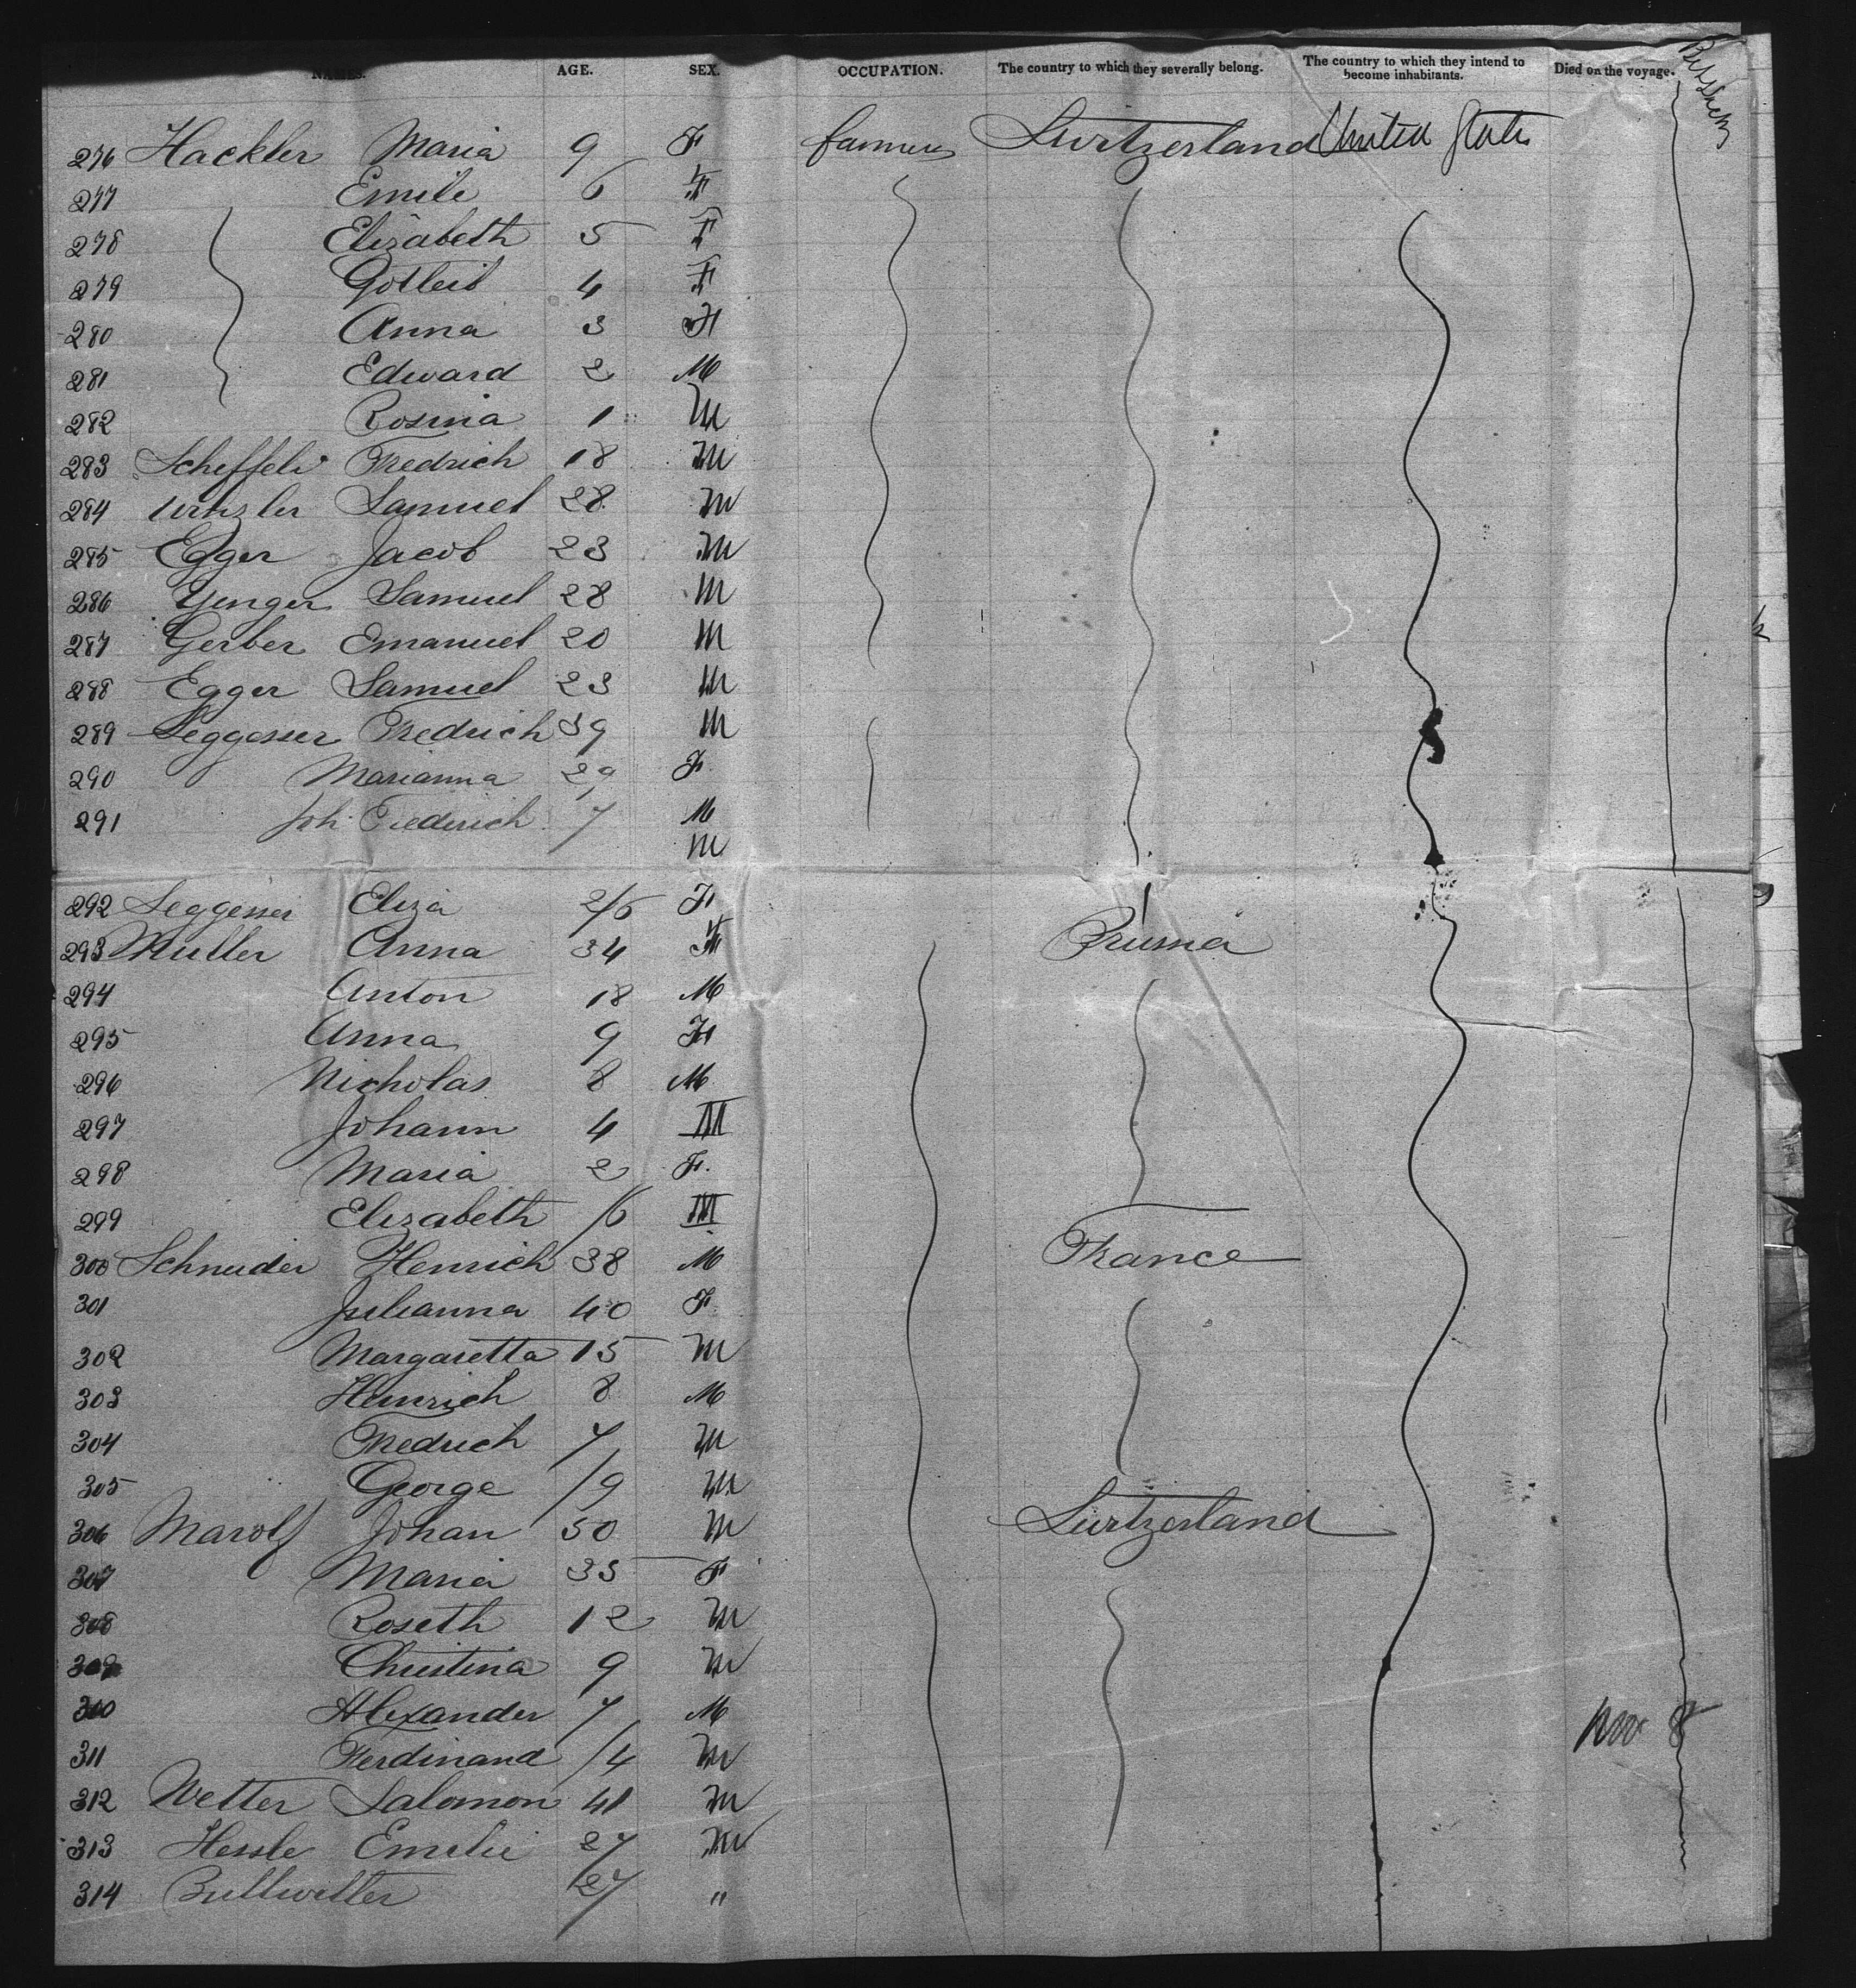 NAMES. AGE. SEX. OCCUPATION. The country to which they severally belong. The country to which they intend to become inhabitants. Died on the voyage.
276 Hackler Maria 9 F farmer Switzerland United States
277 Emile 6 F
278 Elizabeth 5 F
279 Gotleib 4 F
280 Anna 3 F
281 Edward 2 M
282 Rosina 1 M
283 Scheffeli Fredrich 18 M
284 Samuel 28 M
285 Egger Jacob 23 M
286 Yenger Samuel 28 M
287 Gerber Emanuel 20 M
288 Egger Samuel 23 M
289 Leggesser Fredrich 39 M
290 Marianna 29 F
291 Joh. Friedrich 7 M
M
292 Leggesser Eliza 2/6 F
293 Muller Anna 34 F Prussia
294 Anton 18 M
295 Anna 9 F
296 Nicholas 8 M
297 Johann 4 M
298 Maria 2 F.
299 Elizabeth /6 M
300 Schneider Henrich 38 M France
301 Julianna 40 F
302 Margaretta 15 M
303 Heinrich 8 M
304 Fredrich 7 M
305 George /9 M
306 Marolf Johan 50 M Switzerland
307 Maria 35 F
308 Roseth 12 M
309 Christina 9 M
310 Alexander 7 M
311 Ferdinand /4 M Nov 8
312 Wetter Salomon 41 M
313 Hessle Emilie 27 M
314 Bullwetter 27 "